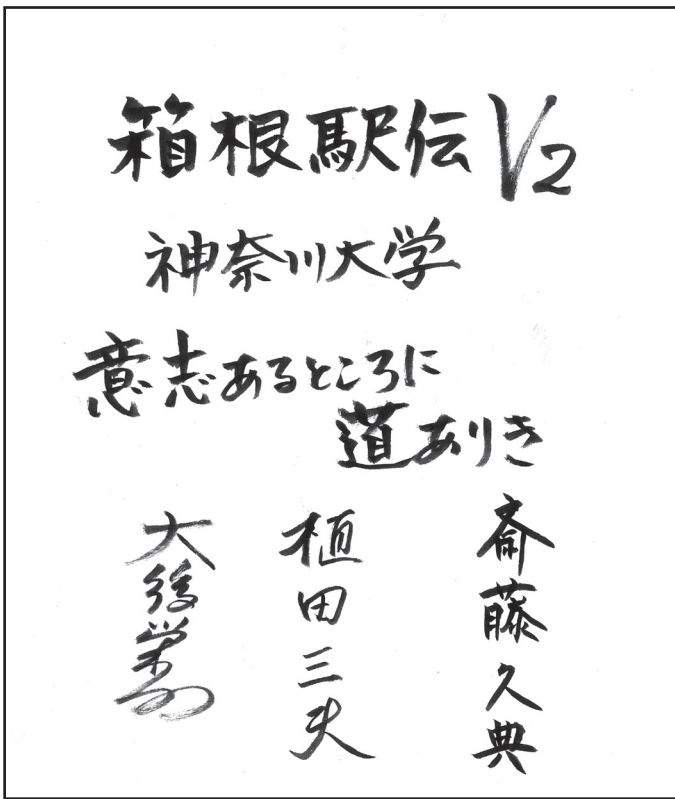 箱根駅伝V2
神奈川大学
意志あるところに
道ありき
斎藤久典
植田三夫
大後栄治